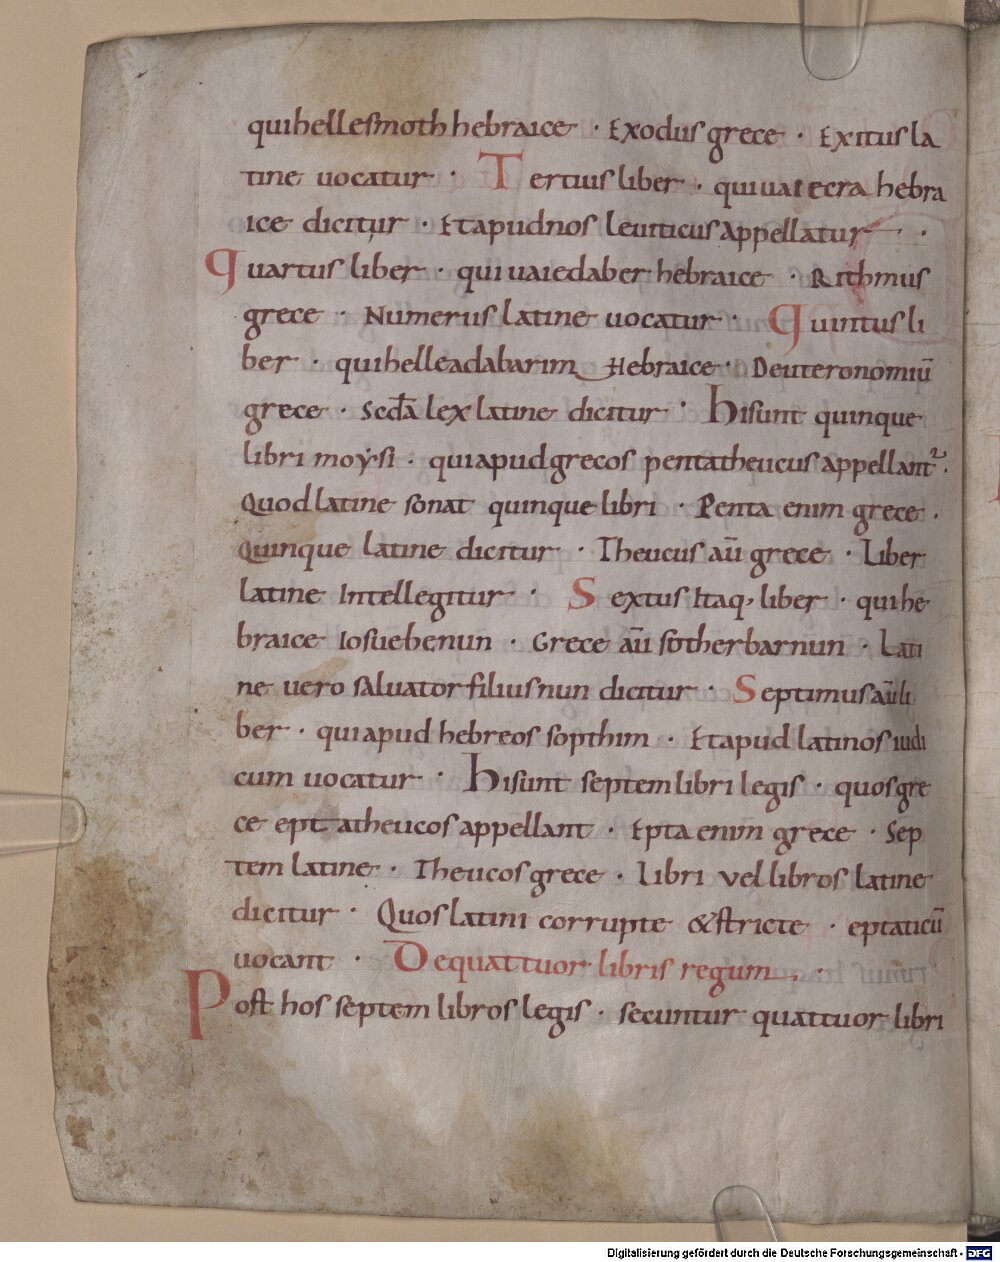 quihellesmoth hebraice · Exodus grece · Exitus la
tine uocatur · Tertius liber · qui uaiecra hebra
ice dicitur · Et apud nos leuiticus appellatur ·
Quartus liber · qui uaiedaber hebraice · Rithmus
grece · Numerus latine uocatur · Quintus li
ber · qui helleadabarim Hebraice · Deuteronomiū
grece · Scd̄a lex latine dicitur · hi sunt quinque
libri moẏsi · qui apud grecos pentatheucus appellant᷑ ·
Quod latine sonat quinque libri · Penta enim grece ·
Quinque latine dicitur · Theucus aū grece · Liber
latine Intellegitur · Sextus Itaq, liber · qui he
braice Iosuebenun · Grece aū sotherbarnun · Lati
ne uero saluator filius nun dicitur · Septimus aū li
ber · qui apud hebreos sopthim · Et apud latinos iudi
cum uocatur · hi sunt septem libri legis · quos gre
ce eptatheucos appellant · Epta enim grece · Sep
tem latine · Theucos grece · Libri vel libros latine
dicitur · Quos latini corrupte & stricte · eptaticū
uocant · De quattuor libris regum ·
Post hos septem libros legis · secuntur quattuor libri
Digitalisierung gefördert durch die Deutsche Forschungsgemeinschaft - DFG